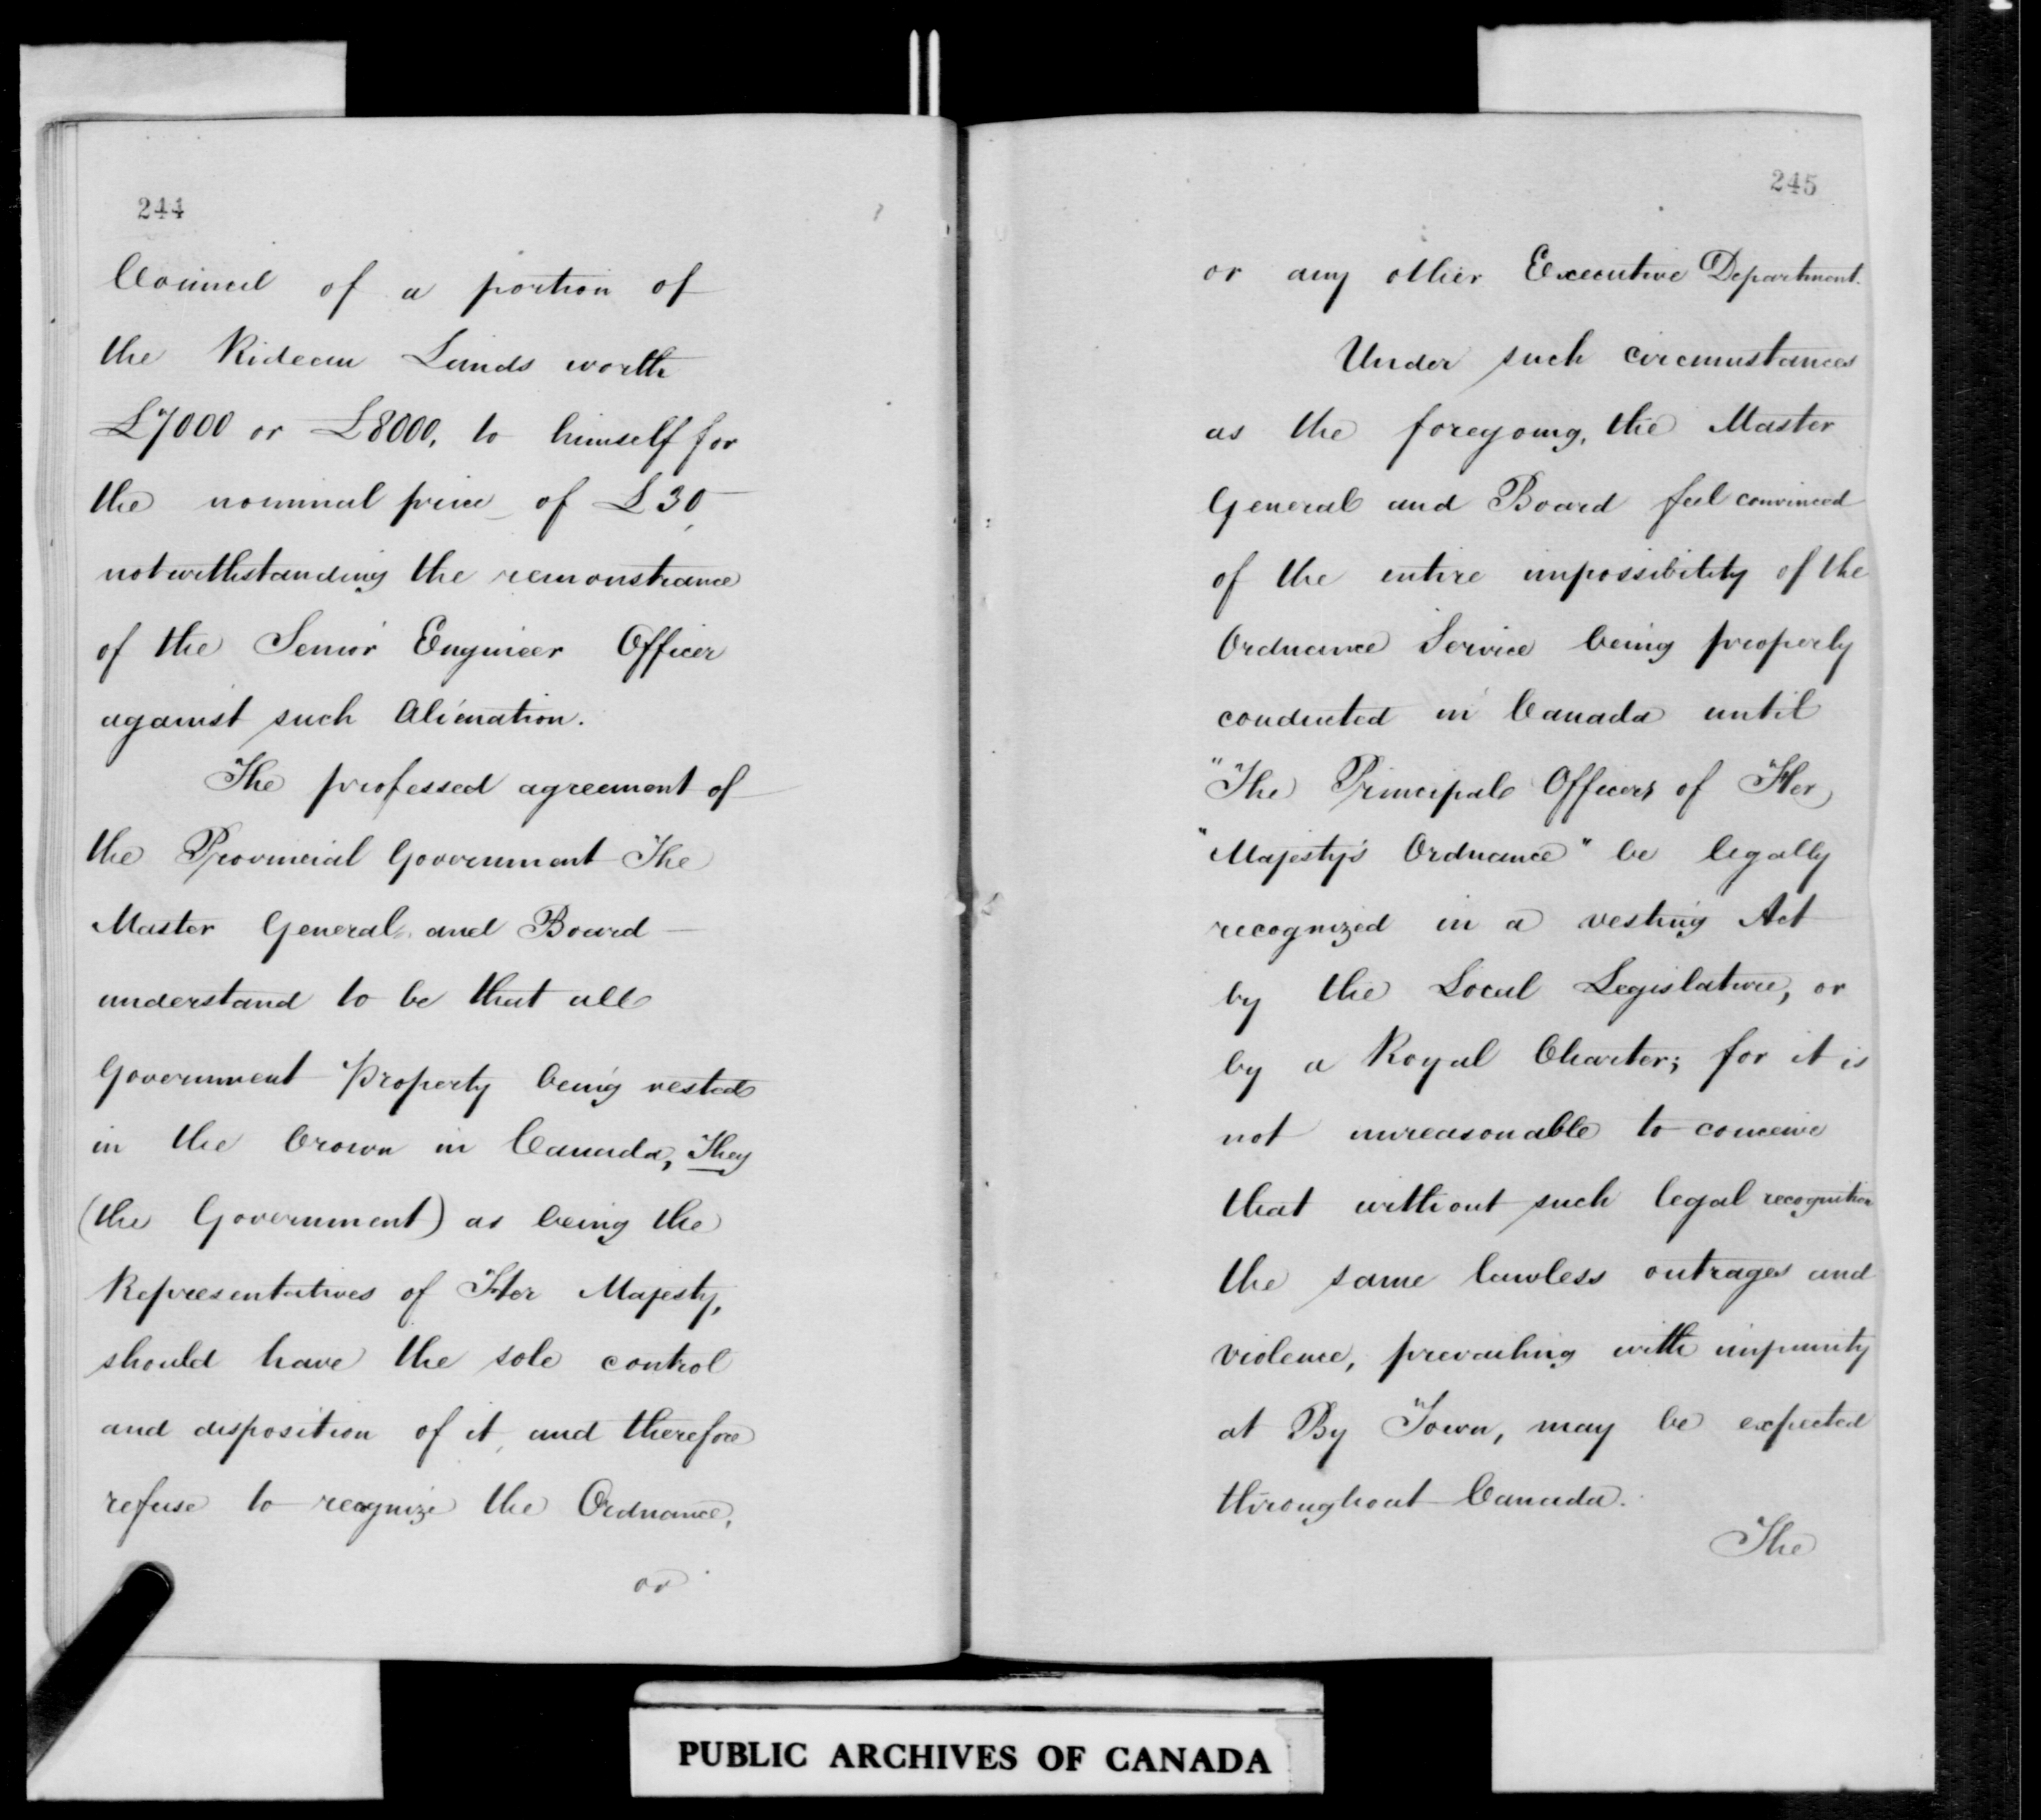 244
Council of a portion of
the Rideau Lands worth
£7000 or £8000, to himself for
the nominal price of £30,
notwithstanding the remonstrance
of the Senior Engineer Officer
against such Alienation.
The professed agreement of
the Provincial Government The
Master General and Board
understand to be that all
Government Property being vested
in the Crown in Canada, They
(the Government) as being the
Representatives of Her Majesty,
should have the sole control
and disposition of it, and therefore
refuse to recognize the Ordnance,
or
245
or any other Executive Department.
Under such circumstances
as the foregoing, the Master
General and Board feel convinced
of the entire impossibility of the
Ordnance Service being properly
conducted in Canada until
"The Principal Officers of Her
"Majesty's Ordnance" be legally
recognized in a vesting Act
by the Local Legislature, or
by a Royal Charter; for it is
not unreasonable to conceive
that without such legal recognition
the same lawless outrages and
violence, prevailing with impunity
at By Town, may be expected
throughout Canada.
The
PUBLIC ARCHIVES OF CANADA